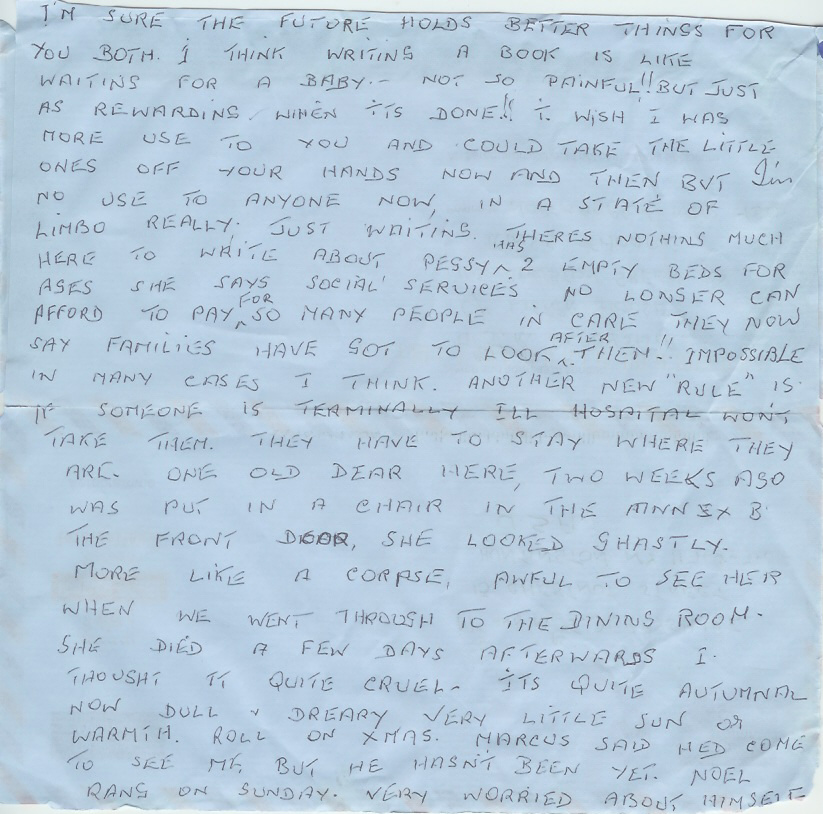 I'M SURE THE FUTURE HOLDS BETTER THINGS FOR
YOU BOTH. I THINK WRITING A BOOK IS LIKE
WAITING FOR A BABY.- NOT SO PAINFUL!! BUT JUST
AS REWARDING WHEN ITS DONE!! I WISH I WAS
MORE USE TO YOU AND COULD TAKE THE LITTLE
ONES OFF YOUR HANDS NOW AND THEN BUT I'm
NO USE TO ANYONE NOW, IN A STATE OF
LIMBO REALLY, JUST WAITING. THERES NOTHING MUCH
HERE TO WRITE ABOUT PEGGY HAS 2 EMPTY BEDS FOR
AGES SHE SAYS SOCIAL SERVICES NO LONGER CAN
AFFORD TO PAY FOR SO MANY PEOPLE IN CARE THEY NOW
SAY FAMILIES HAVE GOT TO LOOK AFTER THEM!! IMPOSSIBLE
IN MANY CASES I THINK. ANOTHER NEW "RULE" IS
IF SOMEONE IS TERMINALLY ILL HOSPITAL WONT
TAKE THEM. THEY HAVE TO STAY WHERE THEY
ARE. ONE OLD DEAR HERE, TWO WEEKS AGO
WAS PUT IN A CHAIR IN THE ANNEX B
THE FRONT DOOR, SHE LOOKED GHASTLY.
MORE LIKE A CORPSE, AWFUL TO SEE HER
WHEN WE WENT THROUGH TO THE DINING ROOM.
SHE DIED A FEW DAYS AFTERWARDS I
THOUGHT IT QUITE CRUEL. ITS QUITE AUTUMNAL
NOW DULL & DREARY VERY LITTLE SUN or
WARMTH. ROLL ON XMAS. MARCUS SAID HED COME
TO SEE ME, BUT HE HASN'T BEEN YET. NOEL
RANG ON SUNDAY. VERY WORRIED ABOUT HIMSELF